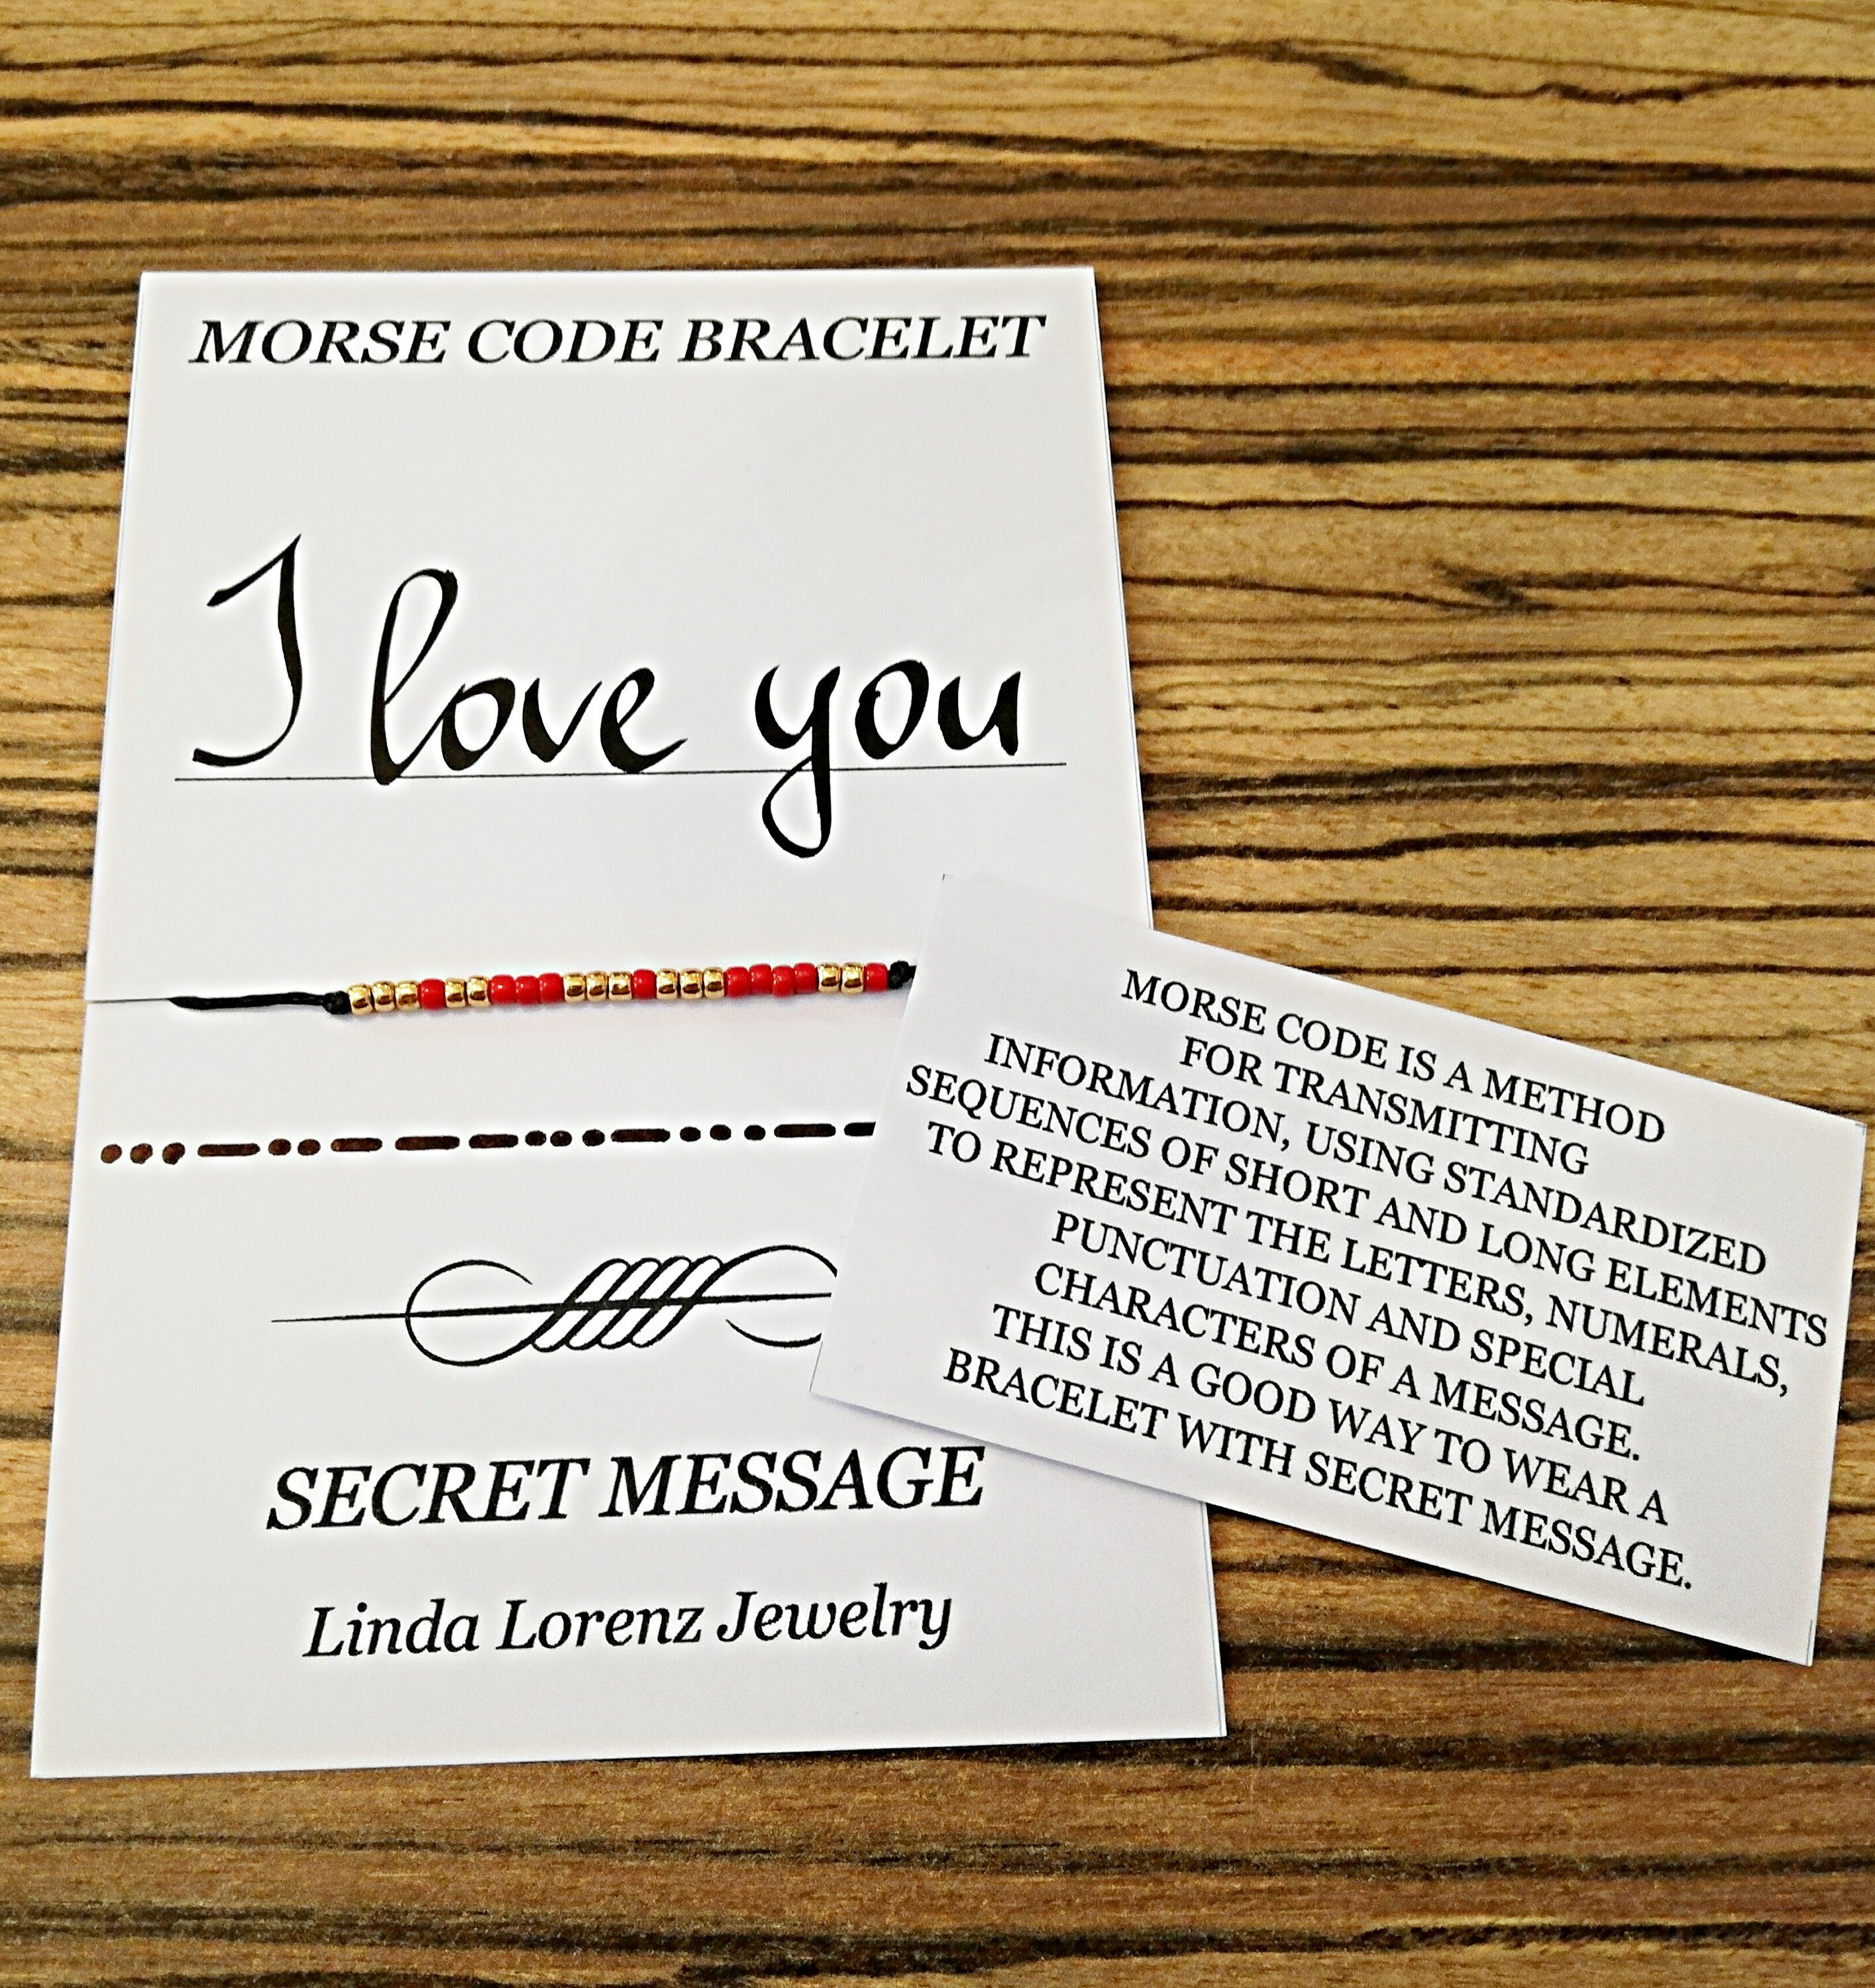 MORSE CODE BRACELET
I love you
SECRET MESSAGE
Linda Lorenz Jewelry
MORSE CODE IS A METHOD
FOR TRANSMITTING
INFORMATION, USING STANDARDIZED
SEQUENCES OF SHORT AND LONG ELEMENTS
TO REPRESENT THE LETTERS, NUMERALS,
PUNCTUATION AND SPECIAL
CHARACTERS OF A MESSAGE.
THIS IS A GOOD WAY TO WEAR A
BRACELET WITH SECRET MESSAGE.